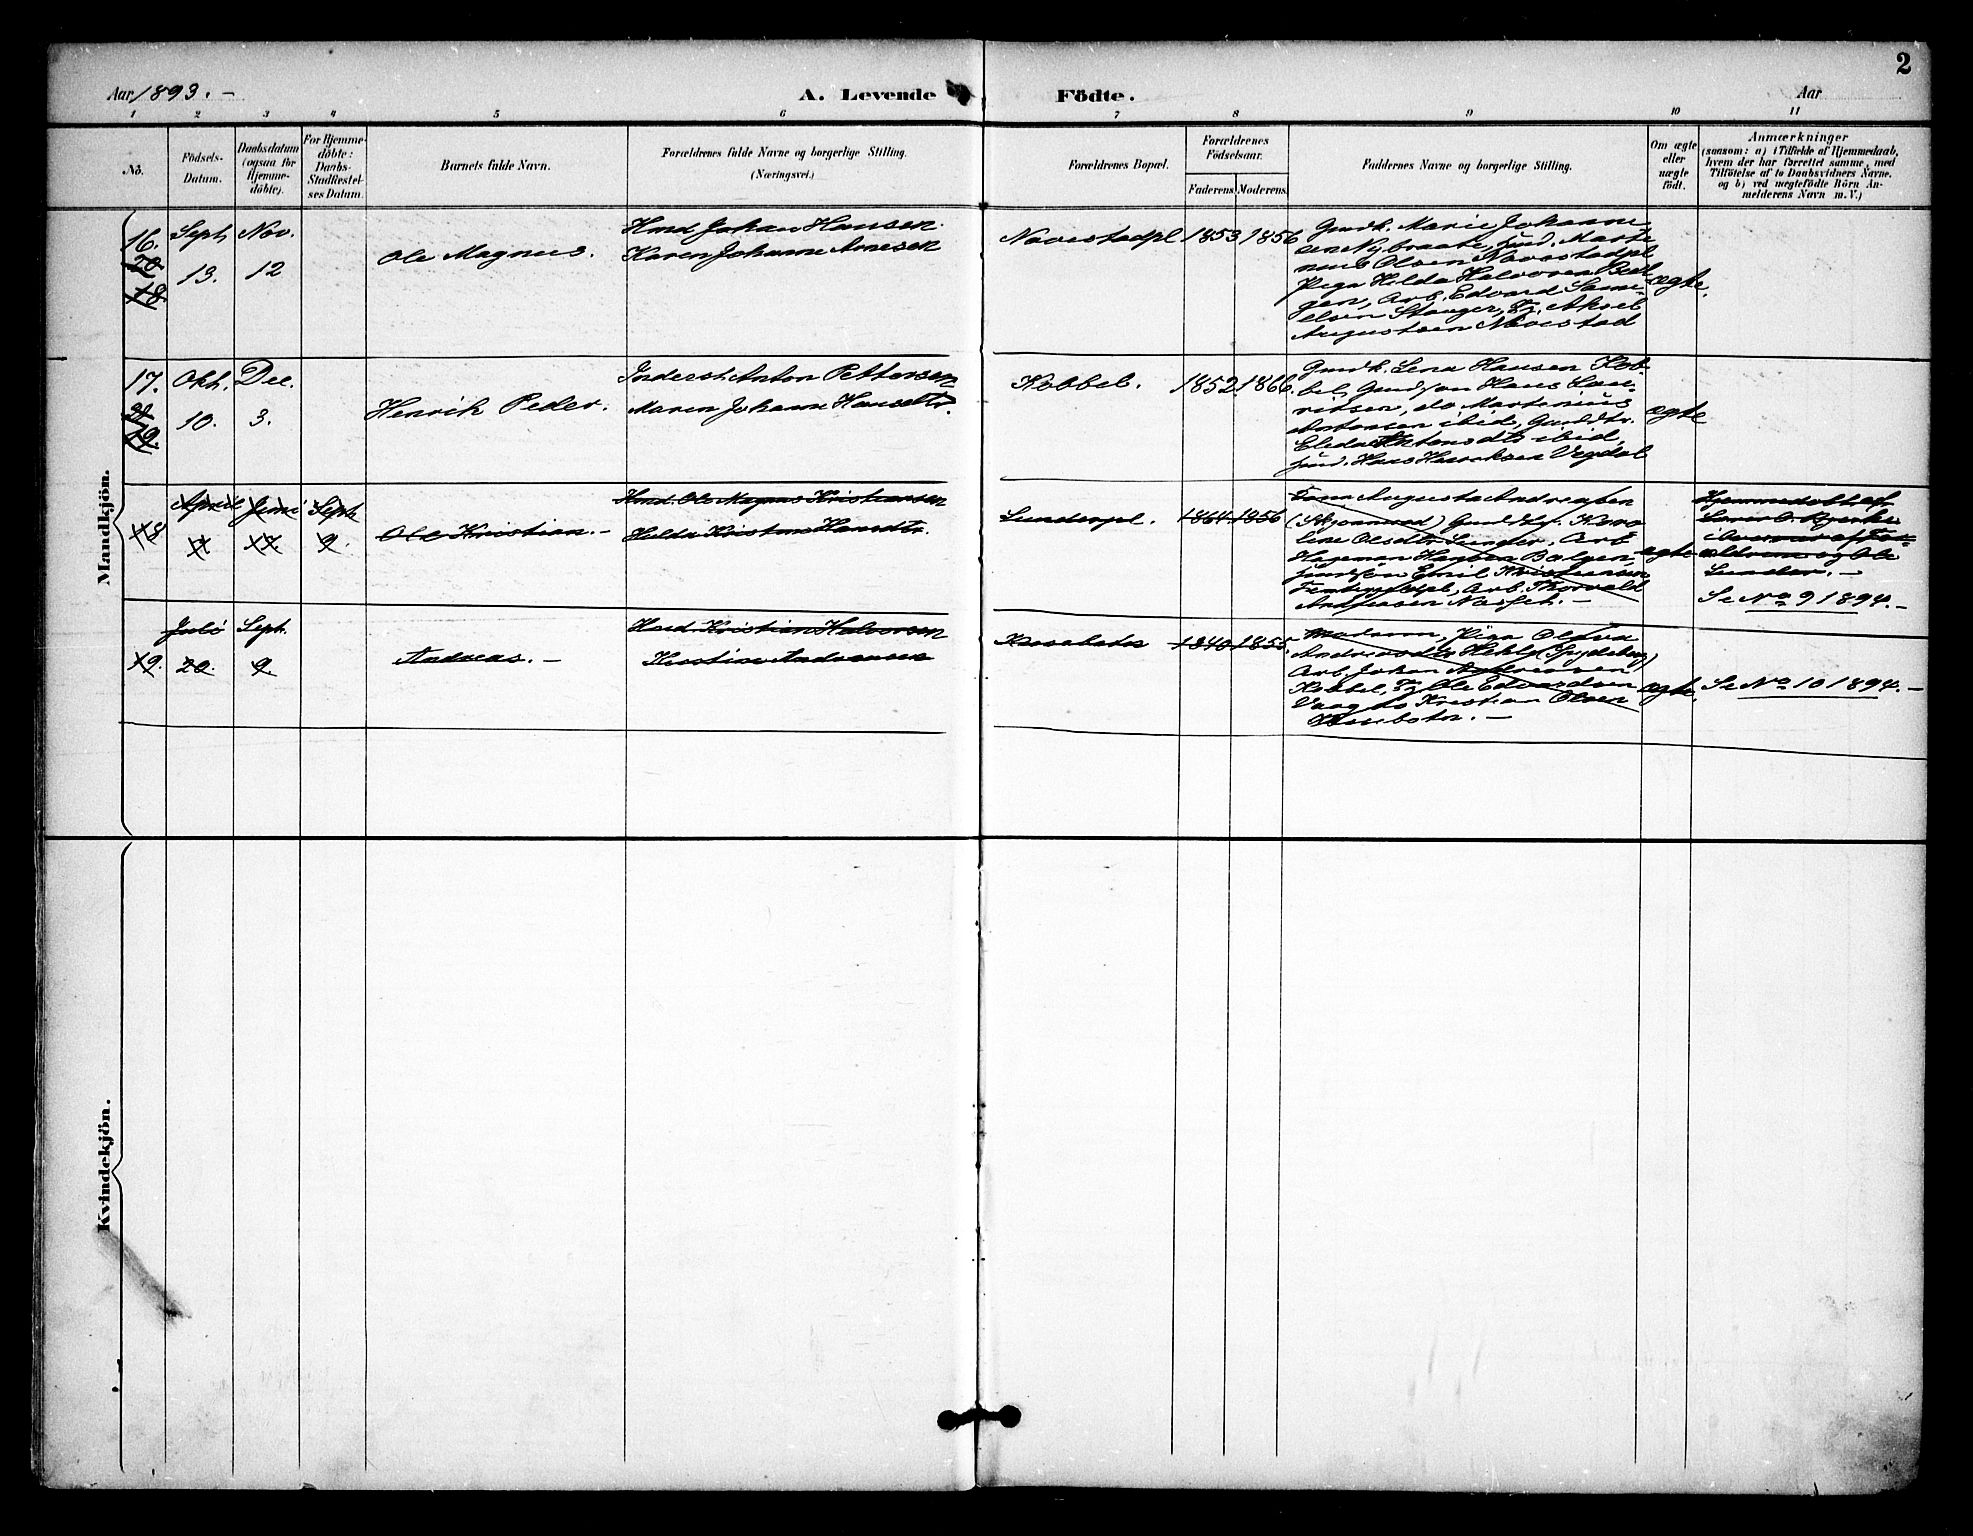 2
Aar 1893. -
A. Levende Födte.
Aar
1 2 3 4 5 6 7 8 9 10 11
No.
Födsels-
Datum.
Daabsdatum
(ogsaa for
Hjemme-
döbte).
For Hjemme-
döbte:
Daabs-
Stadfæstel-
ses Datum.
Barnets fulde Navn.
Forældrenes fulde Navne og borgerlige Stilling.
(Næringsvei.)
Forældrenes Bopæl.
Forældrenes
Födselsaar.
Faderens. Moderens.
Faddernes Navne og borgerlige Stilling.
Om ægte
eller
uægte
födt.
Anmærkninger
(saasom: a) i Tilfælde af Hjemmedaab,
hvem der har forrettet samme, med
Tilföielse af to Daabsvidners Navne.
og b) ved uægtefödte Börn An-
melderens Navn m. V.)
Mandkjön.
16.
20
18.
Sept
13.
Nov.
12
Ole Magnus.
Hmd Johan Hansen
Karen Johanne Arnesen
Navestadpl
1853 1856
Gmdk. Marie Johanne
sen Nybraate, Hmd. Marti
nius Olsen Navestadpl
Pige Hilda Halvorsen Berl
gen, Arb. Edvard Sami-
elsen Stanger, Tj. Aksel
Augustsen Navestad
ægte.
17.
21
19.
Okt.
10.
Dec.
3.
Henrik Peder.
Inderst Anton Pettersen
Maren Johanne Hansdtr.
Kobbel.
1852 1866.
Gmdk. Lena Hansen Kob-
bel, Gmdsøn Hans Lau-
ritsen, do Martinius
Antonsen ibid, Gmddtr.
Antonsdtr ibid,
Hmd. Hans Henriksen Vegdal
ægte
18
April
Juni
Sept
9.
Ole Kristian. -
Hmd. Ole Magnus Kristiansen
Hilda Kristine Hansdtr.
Lunderpl.
1864 1856
Augusta Andreasen
Gmd Karo
line Olsdtr Lunder, Arb
Herman Hansen
Emil Kristiansen
Arb. Thorvald
Andersen
ægte
Hjemmedøbt af
og Ole
Lunder. -
Se No 9 1894. -
19.
Juli
20.
Sept.
9.
Andreas. -
Hmd. Kristian Halvorsen
Kristine Andersen
1840 1855
Moderen, Pige Oliva
(Spydeberg)
Arb. Johan Andreassen
Kobbel, Tj Ole Edvardsen
do Kristian Olsen
ægte
Se No 10 1894. -
Kvindekjön.